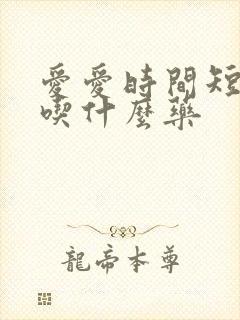 愛愛時間短
喫什麼藥
龍帝本尊